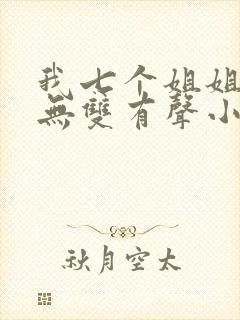 我七个姐姐
無雙有聲小
秋月空太